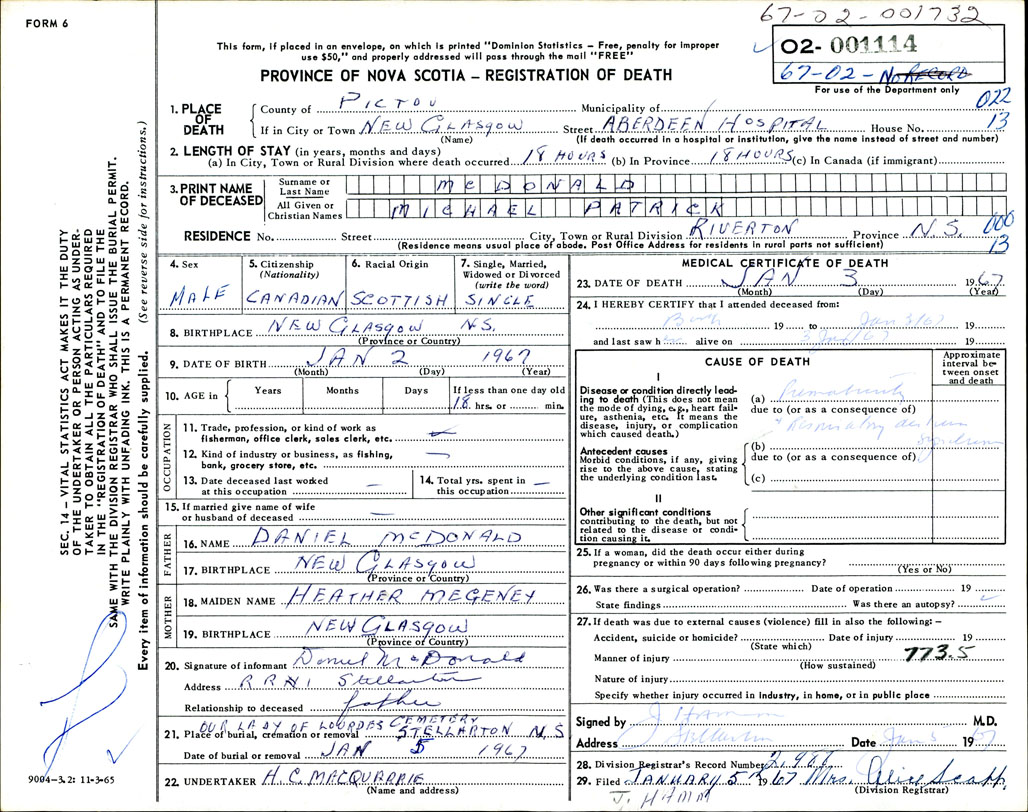 FORM 6
67-02-001732
This form, if placed in an envelope, on which is printed "Dominion Statistics – Free, penalty for improper
use $50," and properly addressed will pass through the mail "FREE"
02- 001114
67-02- No RECORD
For use of the Department only
PROVINCE OF NOVA SCOTIA – REGISTRATION OF DEATH
022
13
1. PLACE OF DEATH
County of PICTOU Municipality of
If in City or Town NEW GLASGOW Street ABERDEEN HOSPITAL House No.
(Name) (If death occurred in a hospital or institution, give the name instead of street and number)
2. LENGTH OF STAY (in years, months and days)
(a) In City, Town or Rural Division where death occurred 18 HOURS (b) In Province 18 HOURS (c) In Canada (if immigrant)
3. PRINT NAME OF DECEASED
Surname or Last Name McDONALD
All Given or Christian Names MICHAEL PATRICK
000
13
RESIDENCE No. Street City, Town or Rural Division RIVERTON Province N.S.
(Residence means usual place of abode. Post Office Address for residents in rural parts not sufficient)
4. Sex
MALE
5. Citizenship (Nationality)
CANADIAN
6. Racial Origin
SCOTTISH
7. Single, Married, Widowed or Divorced (write the word)
SINGLE
8. BIRTHPLACE NEW GLASGOW N.S.
(Province or Country)
9. DATE OF BIRTH JAN 2 1967
(Month) (Day) (Year)
10. AGE in Years Months Days If less than one day old
18 hrs. or min.
OCCUPATION
11. Trade, profession, or kind of work as
fisherman, office clerk, sales clerk, etc.
12. Kind of industry or business, as fishing,
bank, grocery store, etc. —
13. Date deceased last worked
at this occupation —
14. Total yrs. spent in
this occupation —
15. If married give name of wife
or husband of deceased —
FATHER
16. NAME DANIEL McDONALD
17. BIRTHPLACE NEW GLASGOW
(Province or Country)
MOTHER
18. MAIDEN NAME HEATHER MEGENEY
19. BIRTHPLACE NEW GLASGOW
(Province or Country)
20. Signature of informant Daniel McDonald
Address R R #1 Stellarton
Relationship to deceased father
OUR LADY OF LOURDES CEMETERY
21. Place of burial, cremation or removal STELLARTON N.S
Date of burial or removal JAN 5 1967
22. UNDERTAKER H.C. MACQUARRIE
(Name and address)
MEDICAL CERTIFICATE OF DEATH
23. DATE OF DEATH JAN 3 1967
(Month) (Day) (Year)
24. I HEREBY CERTIFY that I attended deceased from:
Birth 19 to Jan 3/67 19
and last saw h alive on 3 Jan/67 19
CAUSE OF DEATH
Approximate interval between onset and death
I
Disease or condition directly leading to death (This does not mean the mode of dying, e.g., heart failure, asthenia, etc. It means the disease, injury, or complication which caused death.)
(a) Prematurity
due to (or as a consequence of)
Respiratory distress
syndrome
Antecedent causes
Morbid conditions, if any, giving rise to the above cause, stating the underlying condition last.
(b)
due to (or as a consequence of)
(c)
II
Other significant conditions
contributing to the death, but not related to the disease or condition causing it.
25. If a woman, did the death occur either during
pregnancy or within 90 days following pregnancy?
(Yes or No)
26. Was there a surgical operation? Date of operation 19
State findings Was there an autopsy?
27. If death was due to external causes (violence) fill in also the following:–
Accident, suicide or homicide? Date of injury 19
(State which)
Manner of injury 773.5
(How sustained)
Nature of injury
Specify whether injury occurred in industry, in home, or in public place
Signed by J Hamm M.D.
Address Stellarton Date Jan 5 1967
28. Division Registrar's Record Number
29. Filed JANUARY 5th 1967 Mrs. Alice Scapp
(Division Registrar)
J. HAMM
SEC. 14 – VITAL STATISTICS ACT MAKES IT THE DUTY
OF THE UNDERTAKER OR PERSON ACTING AS UNDER-
TAKER TO OBTAIN ALL THE PARTICULARS REQUIRED
IN THE "REGISTRATION OF DEATH" AND TO FILE THE
SAME WITH THE DIVISION REGISTRAR WHO SHALL ISSUE THE BURIAL PERMIT.
WRITE PLAINLY WITH UNFADING INK. THIS IS A PERMANENT RECORD.
Every item of information should be carefully supplied. (See reverse side for instructions.)
9004-3.2: 11-3-65